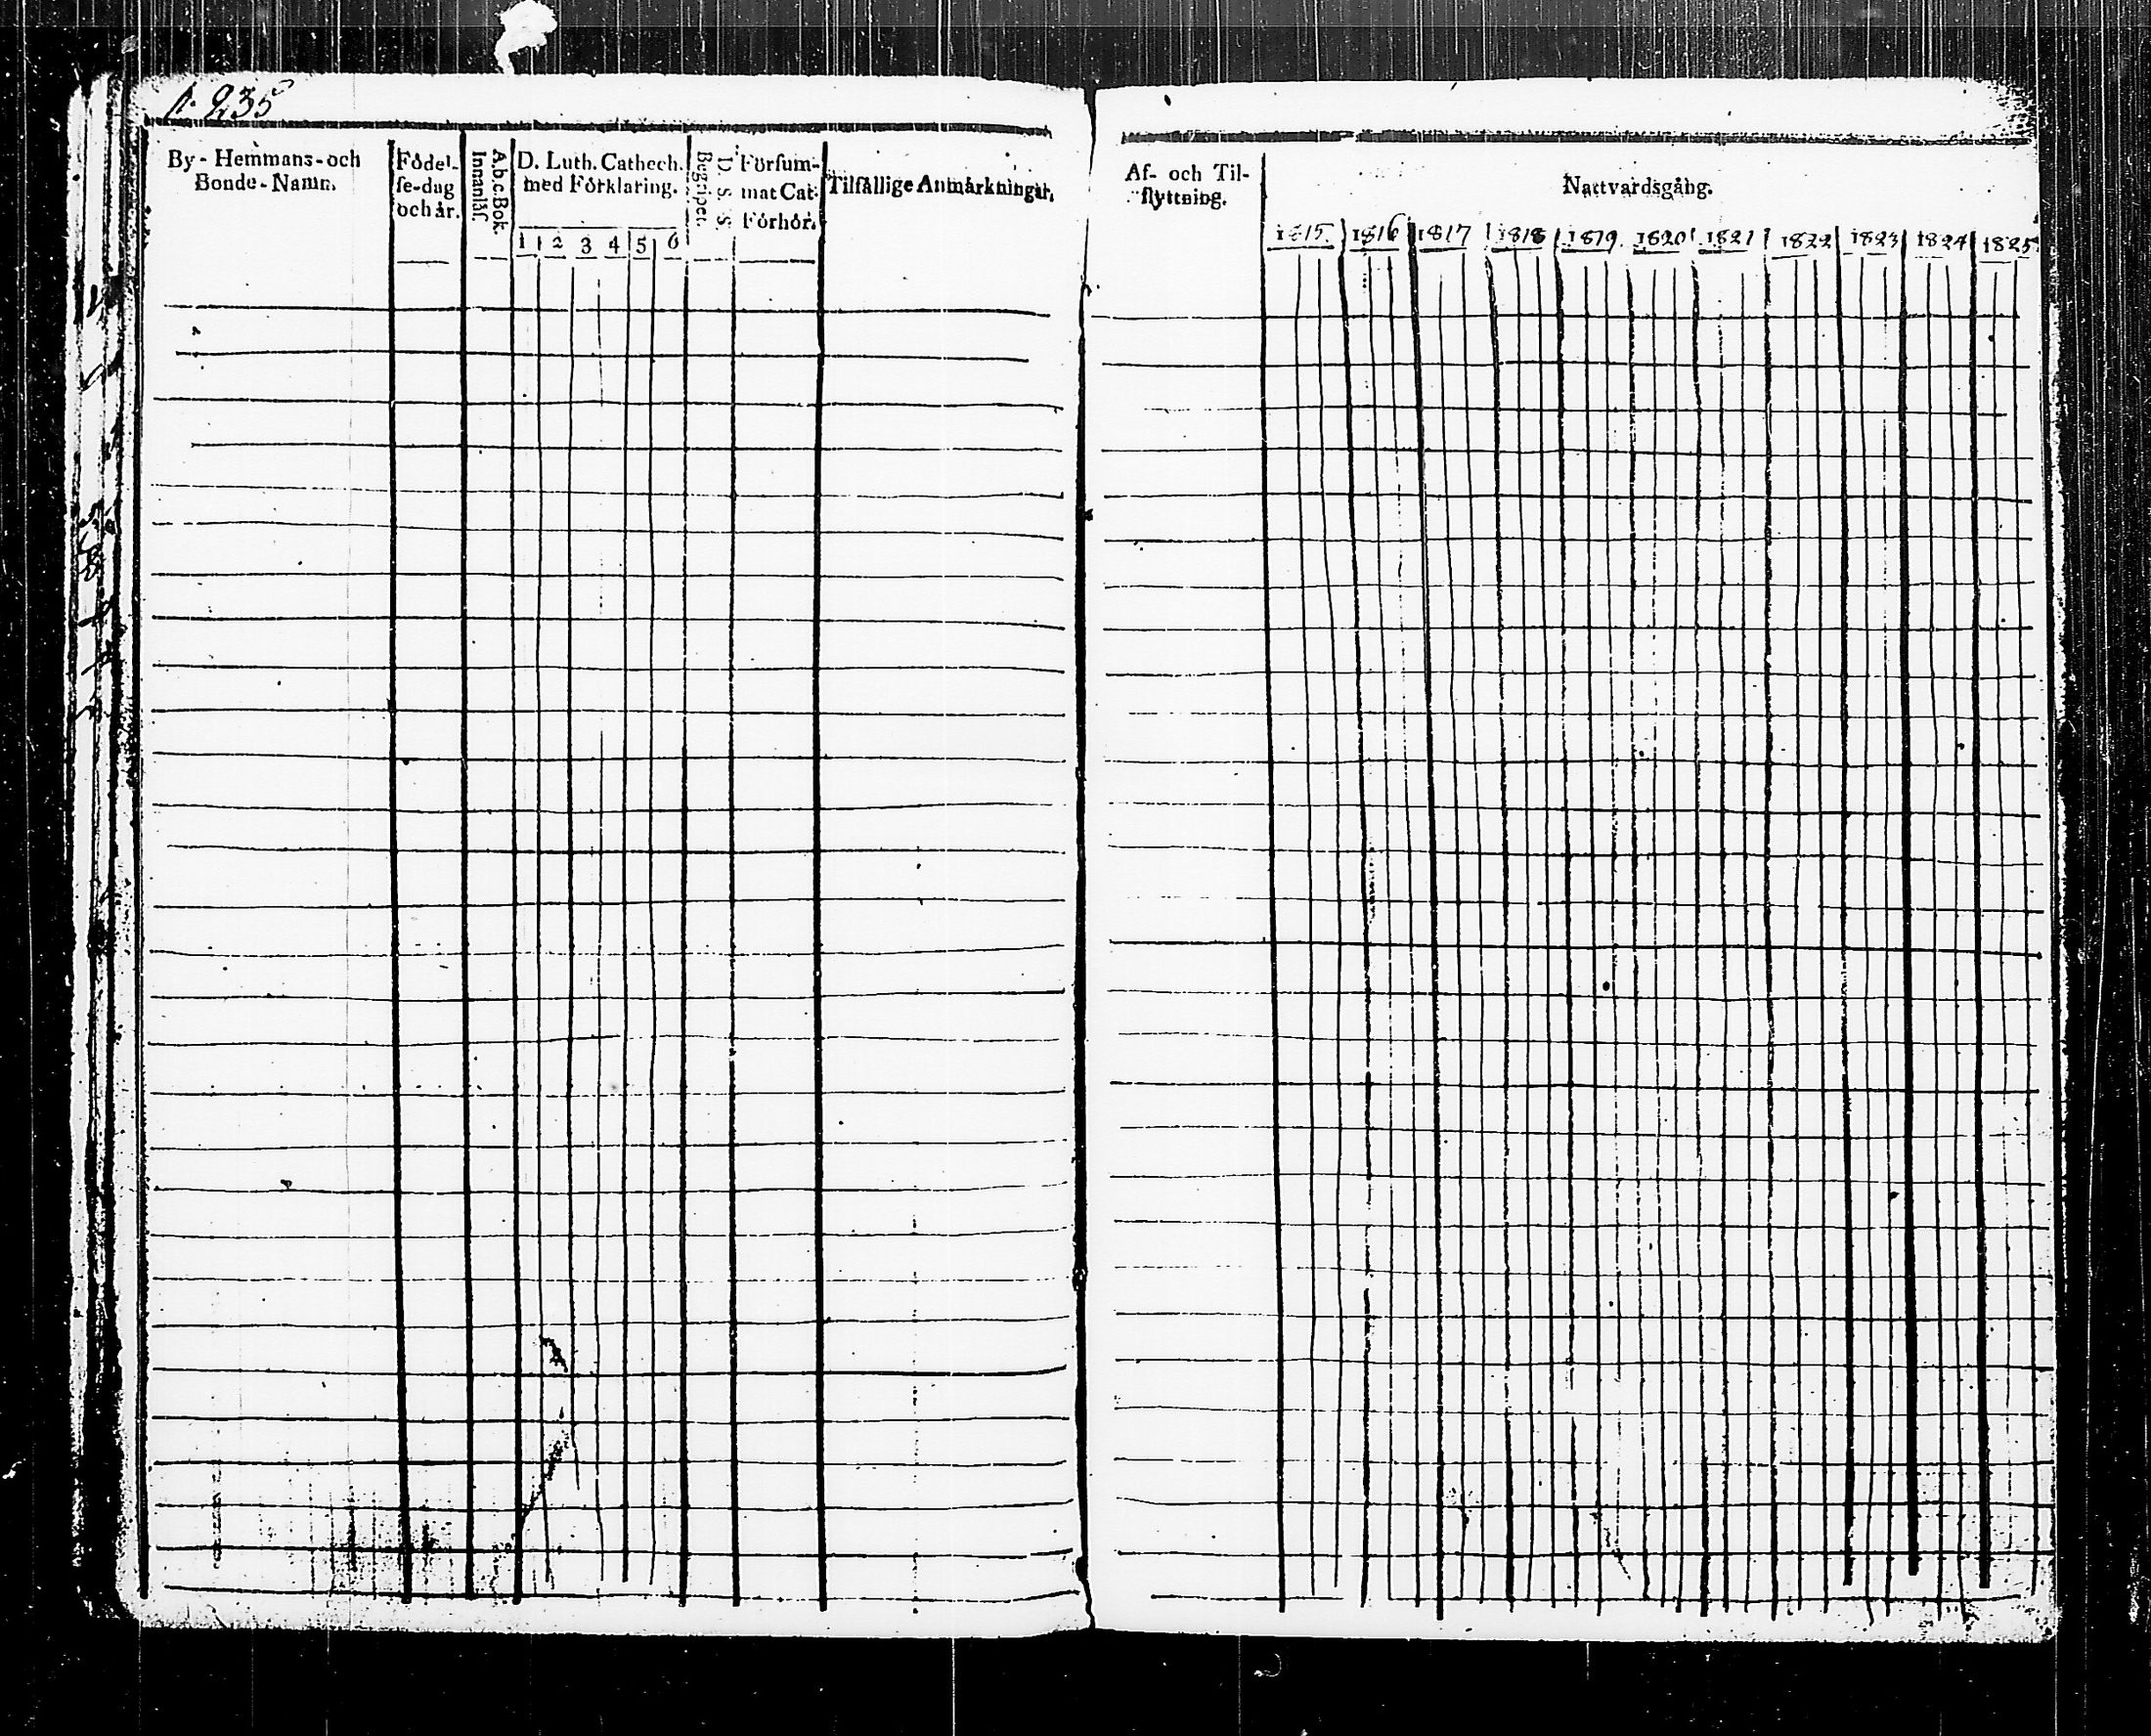 p. 235
By-Hemmans-och
Bonde-Namn.
Födel-
se-dag
och år.
A.b.c.Bok.
Innanläs.
D. Luth. Cathech.
med Förklaring.
1 2 3 4 5 6
Begriper.
D. S. S.
Försum-
mat Cat.
Förhör.
Tilfällige Anmärkningar.
Af- och Til-
flyttning.
Nattvardsgång.
1815. 1816 1817 1818 1819. 1820 1821 1822 1823 1824 1825